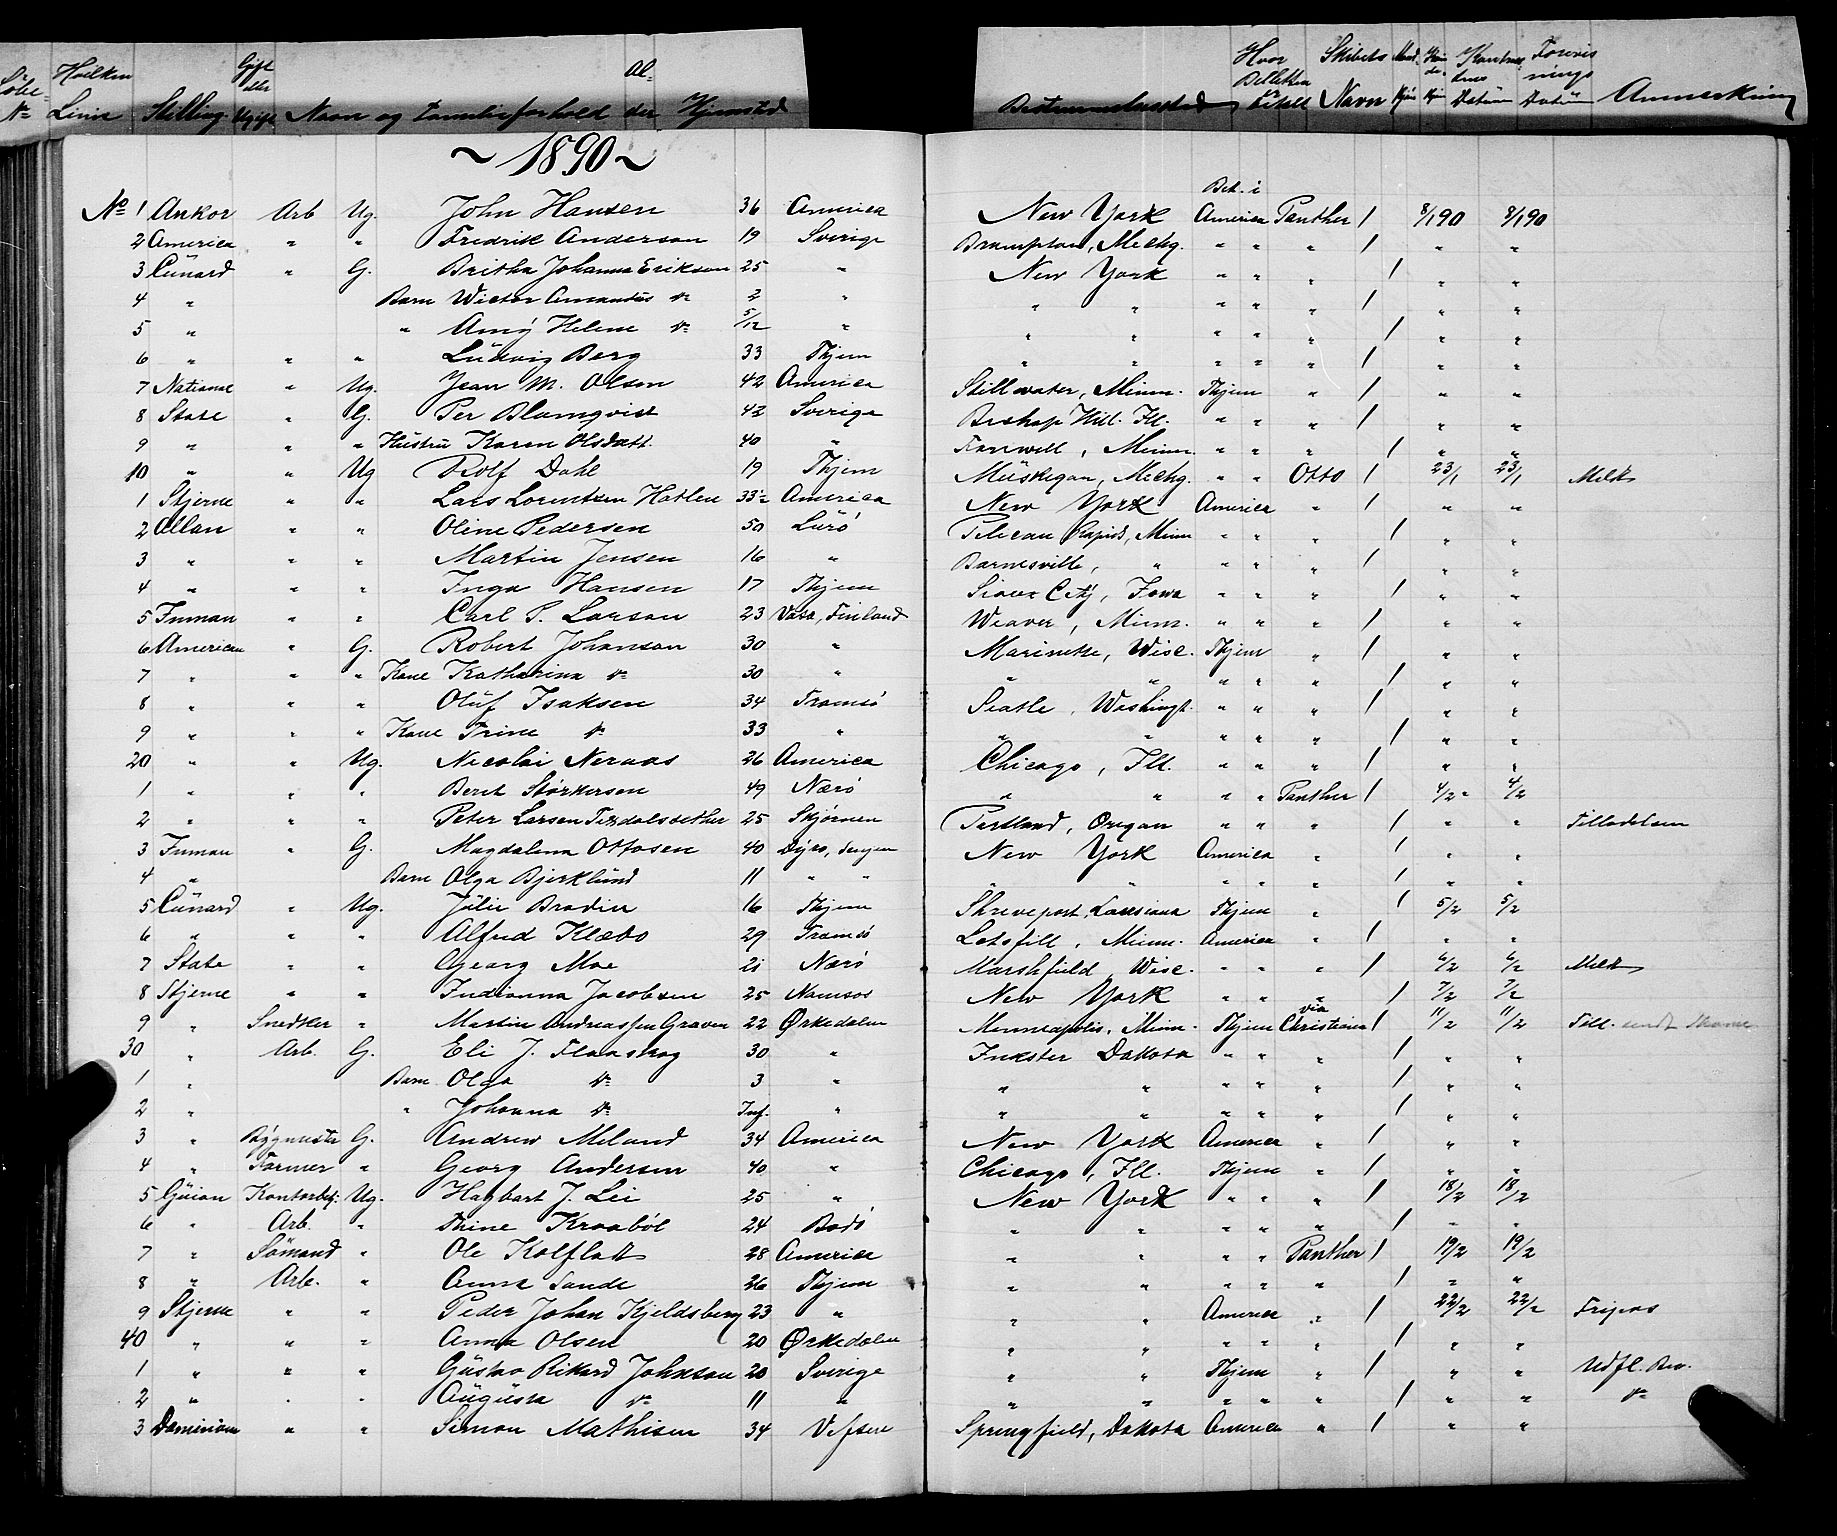 Löbe- N° Hvilken Linie Stilling Gift eller Ugift Navn og Familieforhold Al- der Hjemsted Bestemmelsessted Hvor Billetten er betalt Skibets Navn Mand- kjön Kvin- de- kj. Kontrac- tens Datum Forevis- nings Datum Anmerkning
~ 1890 ~
N° 1 Ankor Arb Ug. John Hansen 36 America New York Bet. i America Panther / 8/1 90 8/1 90
2 America " " Fredrik Anderson 19 Sverige Brampton, Mechg. " " " / " "
3 Cünard " G. Britha Johanna Erikson 25 " New York " " " / " "
4 " Barn Wictor Amandus do 2 " " " " " " / " "
5 " " Amy Helene do 5/12 " " " " " " / " "
6 " " " Ludvig Berg 33 Thjem " " " " " / " "
7 National " Ug. Jean M. Olson 42 America Stillwater, Minn. Thjem " / " "
8 State " G. Per Blomqvist 42 Sverige Bishop Hill. Ill. " " " / " "
9 " " " Hustru Karen Olsdatt. 40 " Farwell, Minn. " " " / " "
10 " " Ug Rolf Dahl 19 Thjem Müskegon, Mechg. " " Otto / 23/1 23/1 Melk
1 Stjerne " " Lars Lorentsen Hatlen 33½ America New York America " / " "
2 Allan " " Oline Pedersen 50 Lurö Pelican Rapids, Minn " " " / " "
3 " " " Martin Jensen 16 " Barnesville, " " " " / " "
4 " " " Inga Hansen 17 Thjem Sioux City, Iowa " " " / " "
5 Inman " " Carl P. Larson 23 Vasa, Finland Weaver, Minn. " " " / " "
6 American " G. Robert Johanson 30 " Marinette, Wisc. Thjem " / " "
7 " " " Kone Katharina do 30 " " " " " " / " "
8 " " " Oluf Isaksen 34 Tromsö Seatle, Washingt. " " " / " "
9 " " " Kone Trine do 33 " " " " " " / " "
20 " " Ug. Nicolai Neraas 26 America Chicago, Ill. " " " / " "
1 " " " Berit Störkersen 49 Nærö " " " " Panther / 4/2 4/2
2 " " " Peter Larsen Terdalssether 25 Skjörnen Portland, Oregon " " " / " " Tilladelsen
3 Inman " G. Magdalena Ottosen 40 Dyrö, Senjen New York America " / " "
4 " Barn Olga Bjerklund 11 " " " " " " " / " "
5 Cünard " Ug. Jülie Brodin 16 Thjem Shreveport, Louisiana Thjem " / 5/2 5/2
6 " " " Alfred Klæbo 29 Tromsö Letsfill, Minn. America " " "
7 State " " Georg Moe 21 Nærö Marshfield, Wisc. " " " / 6/2 6/2 Melk
8 Stjerne " " Indianna Jacobsen 25 Namsos New York " " " / 7/2 7/2
9 " Snedker " Martin Andreassen Graven 22 Ørkedalen Menneapolis, Minn. Thjem via Christiania / 11/2 11/2 Till. sendt
30 " Arb. G. Eli J. Flaaskog 30 " Inkster Dakota " " " / " "
1 " Barn Olga do 3 " " " " " " / " "
2 " " Johanna do Inf. " " " " " " / " "
3 " Bygmester G. Andrew Meland 34 America New York America " / " "
4 " Farmer " Georg Andersen 40 " Chicago, Ill. Thjem " / " "
5 Güion Kontorbetj. Ug. Hagbart J. Lei 25 " New York " " " / 18/2 18/2
6 " Arb. " Trine Kraaböl 24 Bodö " " " " " / " "
7 " Sömand " Ole Kolflatt 28 America " " " " Panther / 19/2 19/2
8 " Arb. " Anna Sande 26 Thjem " " " " " / " "
9 Stjerne " " Peder Johan Kjeldsberg 23 " " " America " / 22/2 22/2 Fripas
40 " " " Anna Olsen 20 Ørkedalen " " " " " / " "
1 " " " Güstav Rikard Johnson 20 Sverige " " Thjem " / " " Udfl. Bev.
2 " " " Augüsta do 11 " " " " " " / " " do
3 Dominion " " Simon Mathisen 34 Vefsen Springfield, Dakota America " / " "